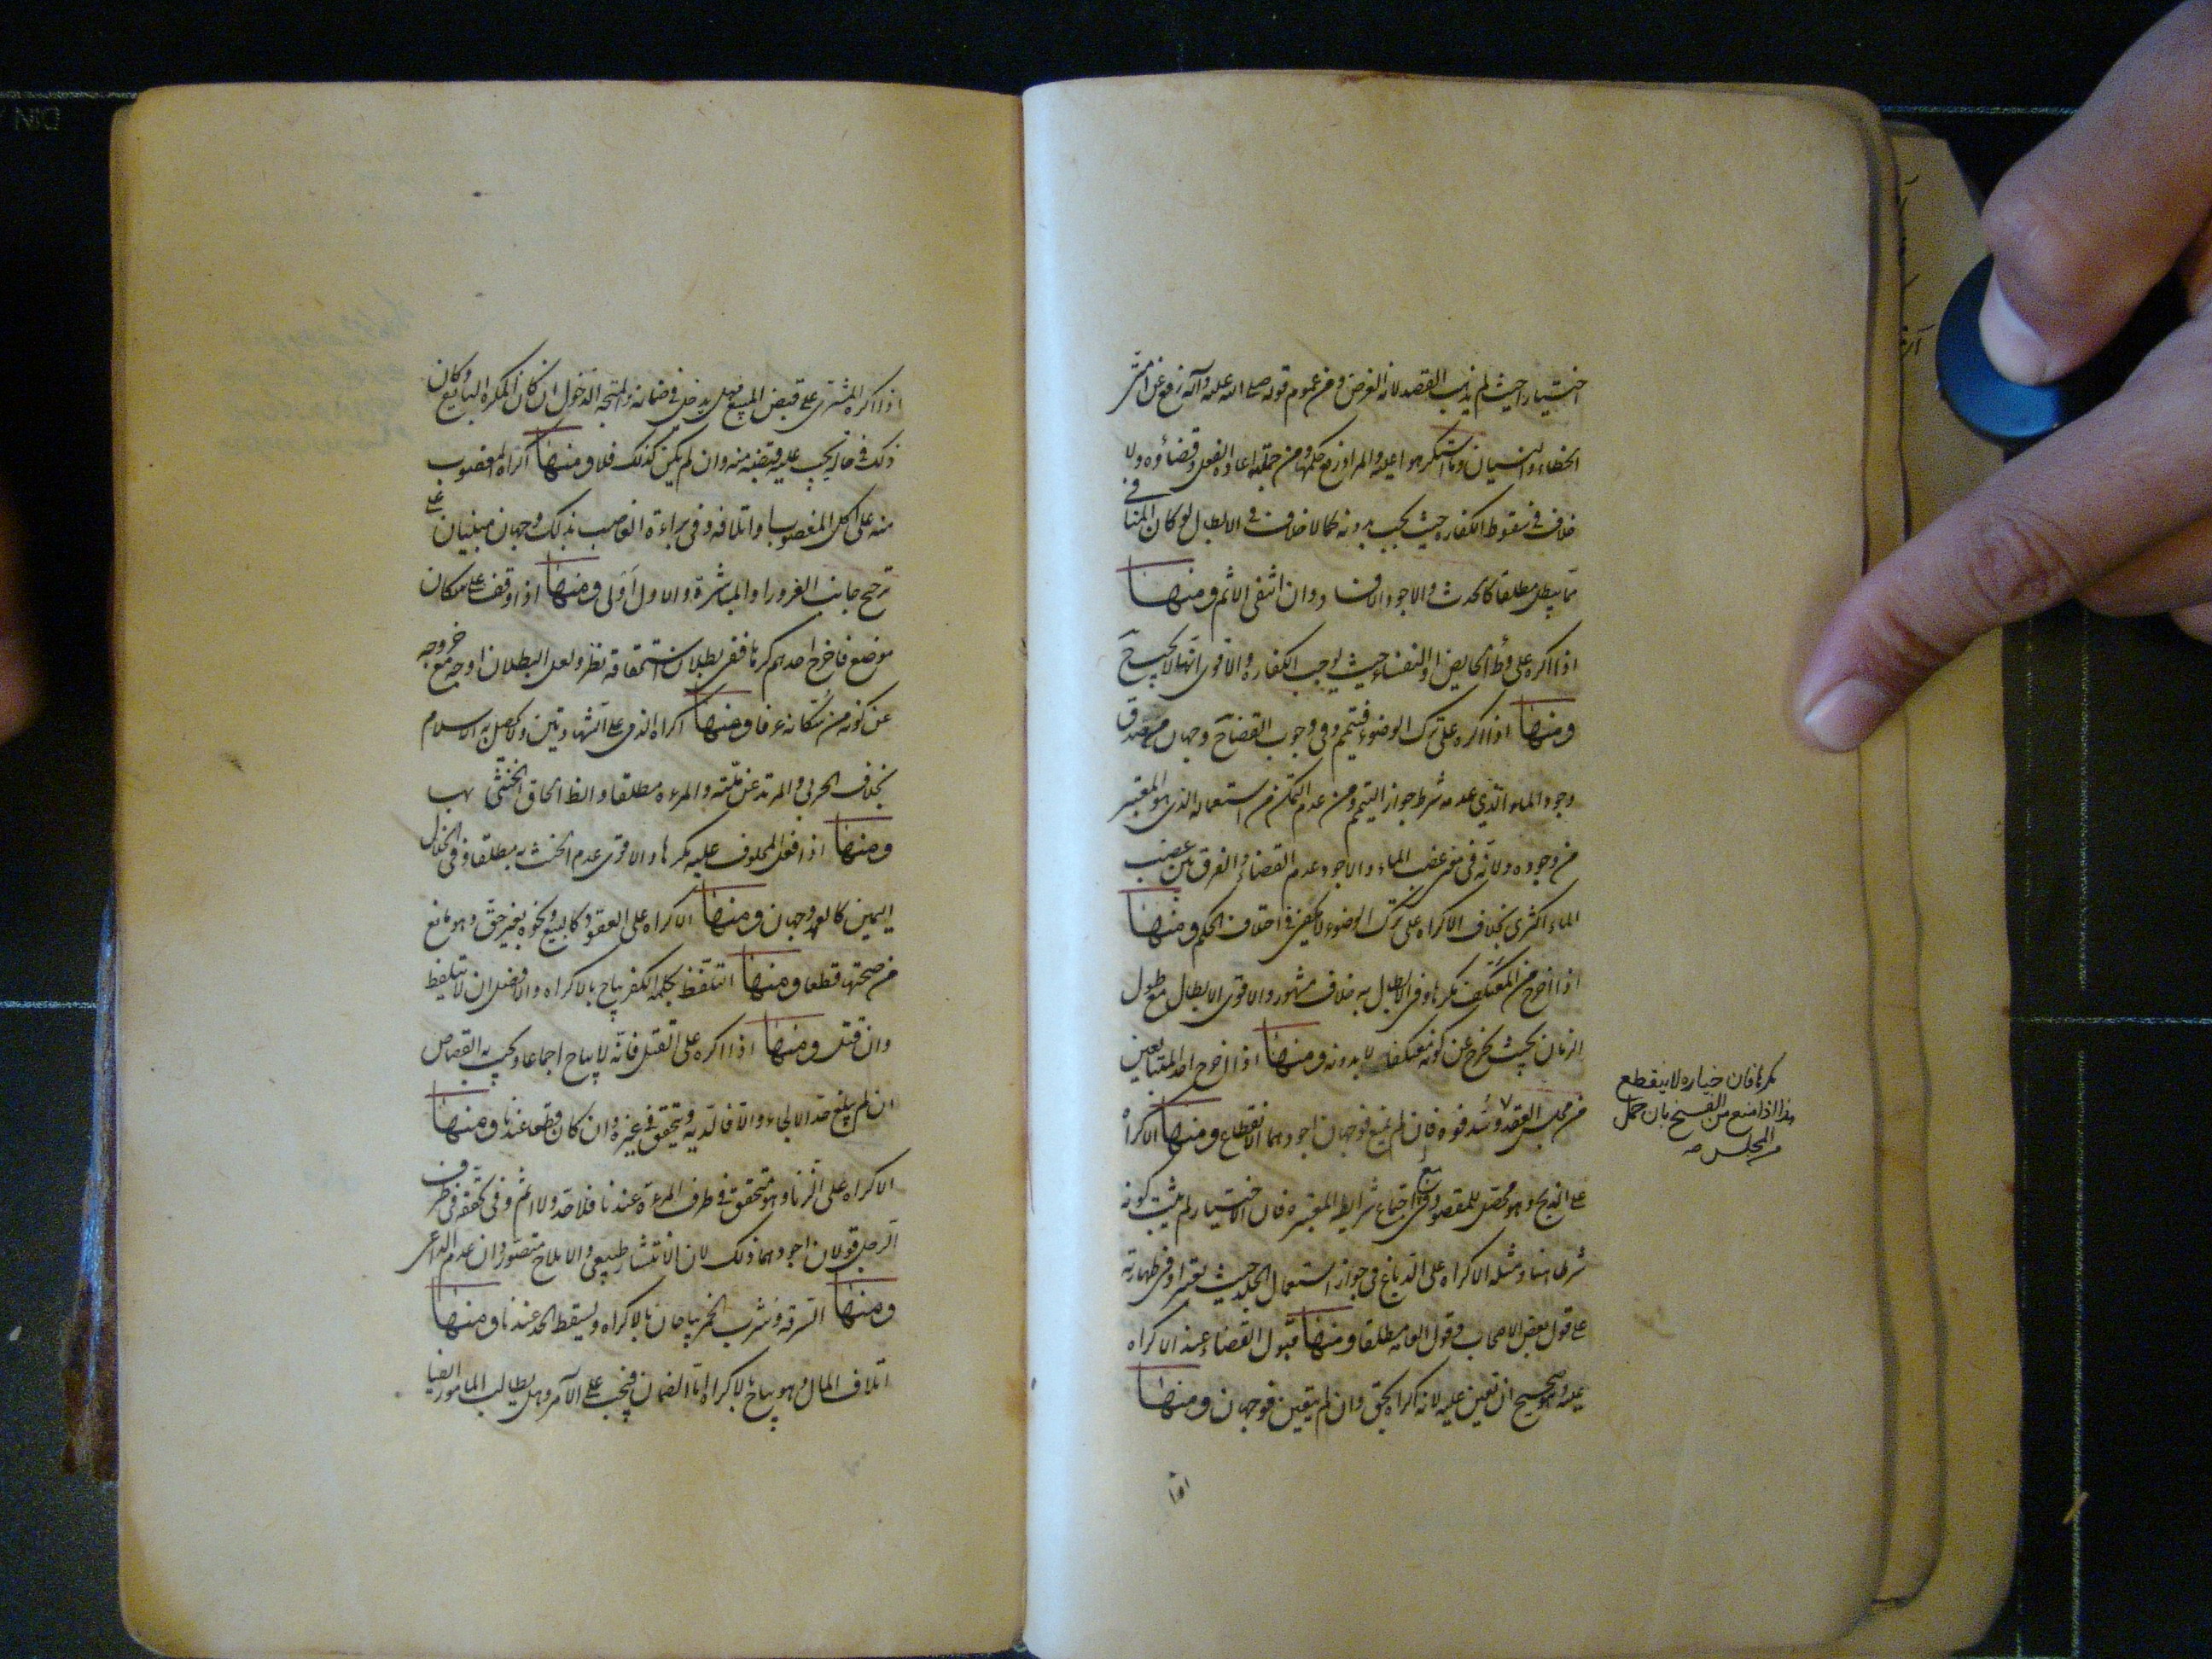 اختيارا حيث لم يذهب القصد لانه الغرض ومن عموم قوله صلى الله عليه وآله رفع عن امتى
الخطاء والنسيان وما استكرهوا عليه والمراد رفع حكمها ومن جملته اعادة الفعل وقضاؤه ولا
خلاف فى سقوط الكفاره حيث يجب بدونه كما لا خلاف فى الابطال لو كان المنافى
مما يبطل مطلقا كالحدث والاجود الافساد وان انتفى الاثم ومنها
اذا اكره على وطأ الحايض او النفساء حيث يوجب الكفاره والاقوى انها لا يجب ح
ومنها اذا اكره على ترك الوضوء فيتيمم وفى وجوب القضاح وجهان من صدق
وجود الماء الذي عدمه شرط جواز التيمم ومن عدم التمكن من استعماله الذى هو المعتبر
من وجوده ولانه فى معنى غصب الماء والاجود عدم القضاء والفرق بان غصب
الماء اكثرى بخلاف الاكراه على ترك الوضوء لا يكفى فى اختلاف الحكم ومنها
اذا اخرج من المعتكف مكرها وفى الابطال به خلاف مشهور والاقوى الابطال مع طول
الزمان بحيث يخرج عن كونه معتكفا لا بدونه ومنها اذا اخرج احد المتبايعين
من مجلس العقد وسد فوه فان لم يمنع فوجهان اجودهما الانقطاع ومنها الاكراه
على الذبح وهو محصل للمقصود مع اجتماع شرايط المعتبره فان الاختيار لم يثبت كونه
شرطا هنا ومثله الاكراه على الدباغ فى جواز استعمال الجلد حيث يعتبر او فى طهارته
على قول بعض الاصحاب وقول العامه مطلقا ومنها قبول القضاء عند الاكراه
عليه وهو صحيح ان تعين عليه لانه اكراه بحق وان لم يتعين فوجهان ومنها
مكرها فان خياره لا ينقطع
هذا اذا منع من الفسخ بان حمل
من المجلس
اذا
اذا اكره المشترى على قبض المبيع فهل يدخل فى ضمانه والمتجه الدخول ان كان المكره البايع وكان
ذلك فى حال يجب عليه قبضه منه وان لم يكن كذلك فلا ومنها اكراه المغصوب
منه على اكل المغصوب او اتلافه وفى براءة الغاصب بذلك وجهان مبنيان على
ترجيح جانب الغرور او المباشرة والاول اولى ومنها اذا وقف على سكان
موضع فاخرج احدهم كرها ففى بطلان استحقاقه نظر ولعل البطلان اوجه مع خروجه
عن كونه من سكانه عرفا ومنها اكراه الذمى على الشهادتين ولا يحصل به الاسلام
بخلاف الحربى والمرتد عن ملته والمرءه مطلقا والظ الحاق الخنثى بها
ومنها اذا فعل المحلوف عليه مكرها والاقوى عدم الحنث به مطلقا وفى انحلال
اليمين كالعهد وجهان ومنها الاكراه على العقود كالبيع ونحوه بغير حق وهو مانع
من صحتها قطعا ومنها التلفظ بكلمه الكفر يباح بالاكراه والافضل ان لا يتلفظ
وان قتل ومنها اذا اكره على القتل فانه لا يباح اجماعا ويجب به القصاص
ان لم يبلغ حد الالجاء والا فالديه ويتحقق فى غيره وان كان قطعا عندنا ومنها
الاكراه على الزنا وهو متحقق فى طرف المرءة عندنا فلا حد ولا اثم وفى تحققه فى طرف
الرجل قولان اجودهما ذلك لان الانتشار طبيعى والايلاج متصور وان عدم الداعى
ومنها السرقه وشرب الخمر يباحان بالاكراه ويسقط الحد عندنا ومنها
اتلاف المال وهو يباح بالاكراه اما الضمان فيجب على الآمر وهل يطالب المامور ايضا